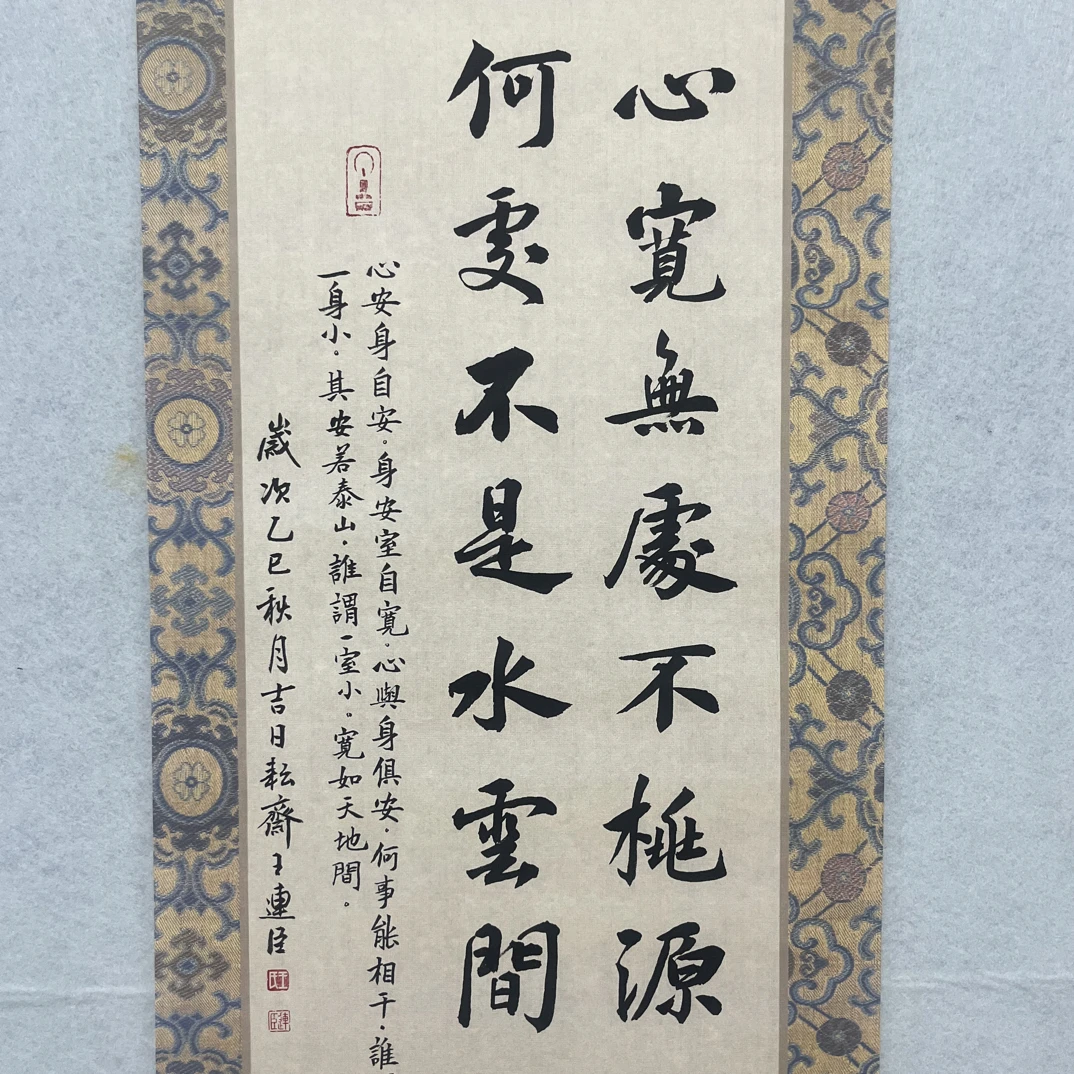 心寬無處不桃源
何處不是水雲間
心安身自安。身安室自寬。心與身俱安。何事能相干。誰
一身小。其安若泰山。誰謂一室小。寬如天地間。
歲次乙巳秋月吉日耘齋王連臣
連臣